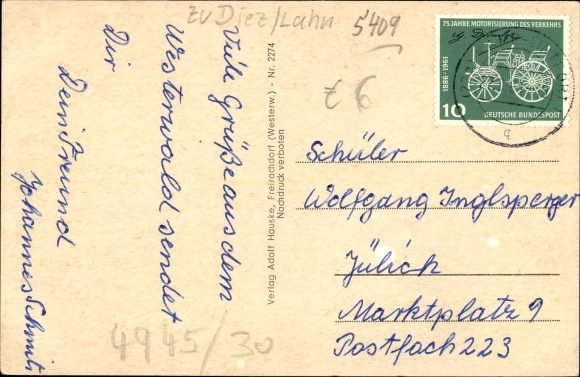 zu Diez/Lahn
5409
t 6
Viele Grüße aus dem
Westerwald sendet
Dir
Dein Freund
Johannes Schmitz
Verlag Adolf Hauske, Freirachdorf (Westerw.) - Nr. 2274
Nachdruck verboten
75 JAHRE MOTORISIERUNG DES VERKEHRS
1886-1961
10 DEUTSCHE BUNDESPOST
Schüler
Wolfgang Inglsperger
Jülich
Marktplatz 9
Postfach 223
4945/30